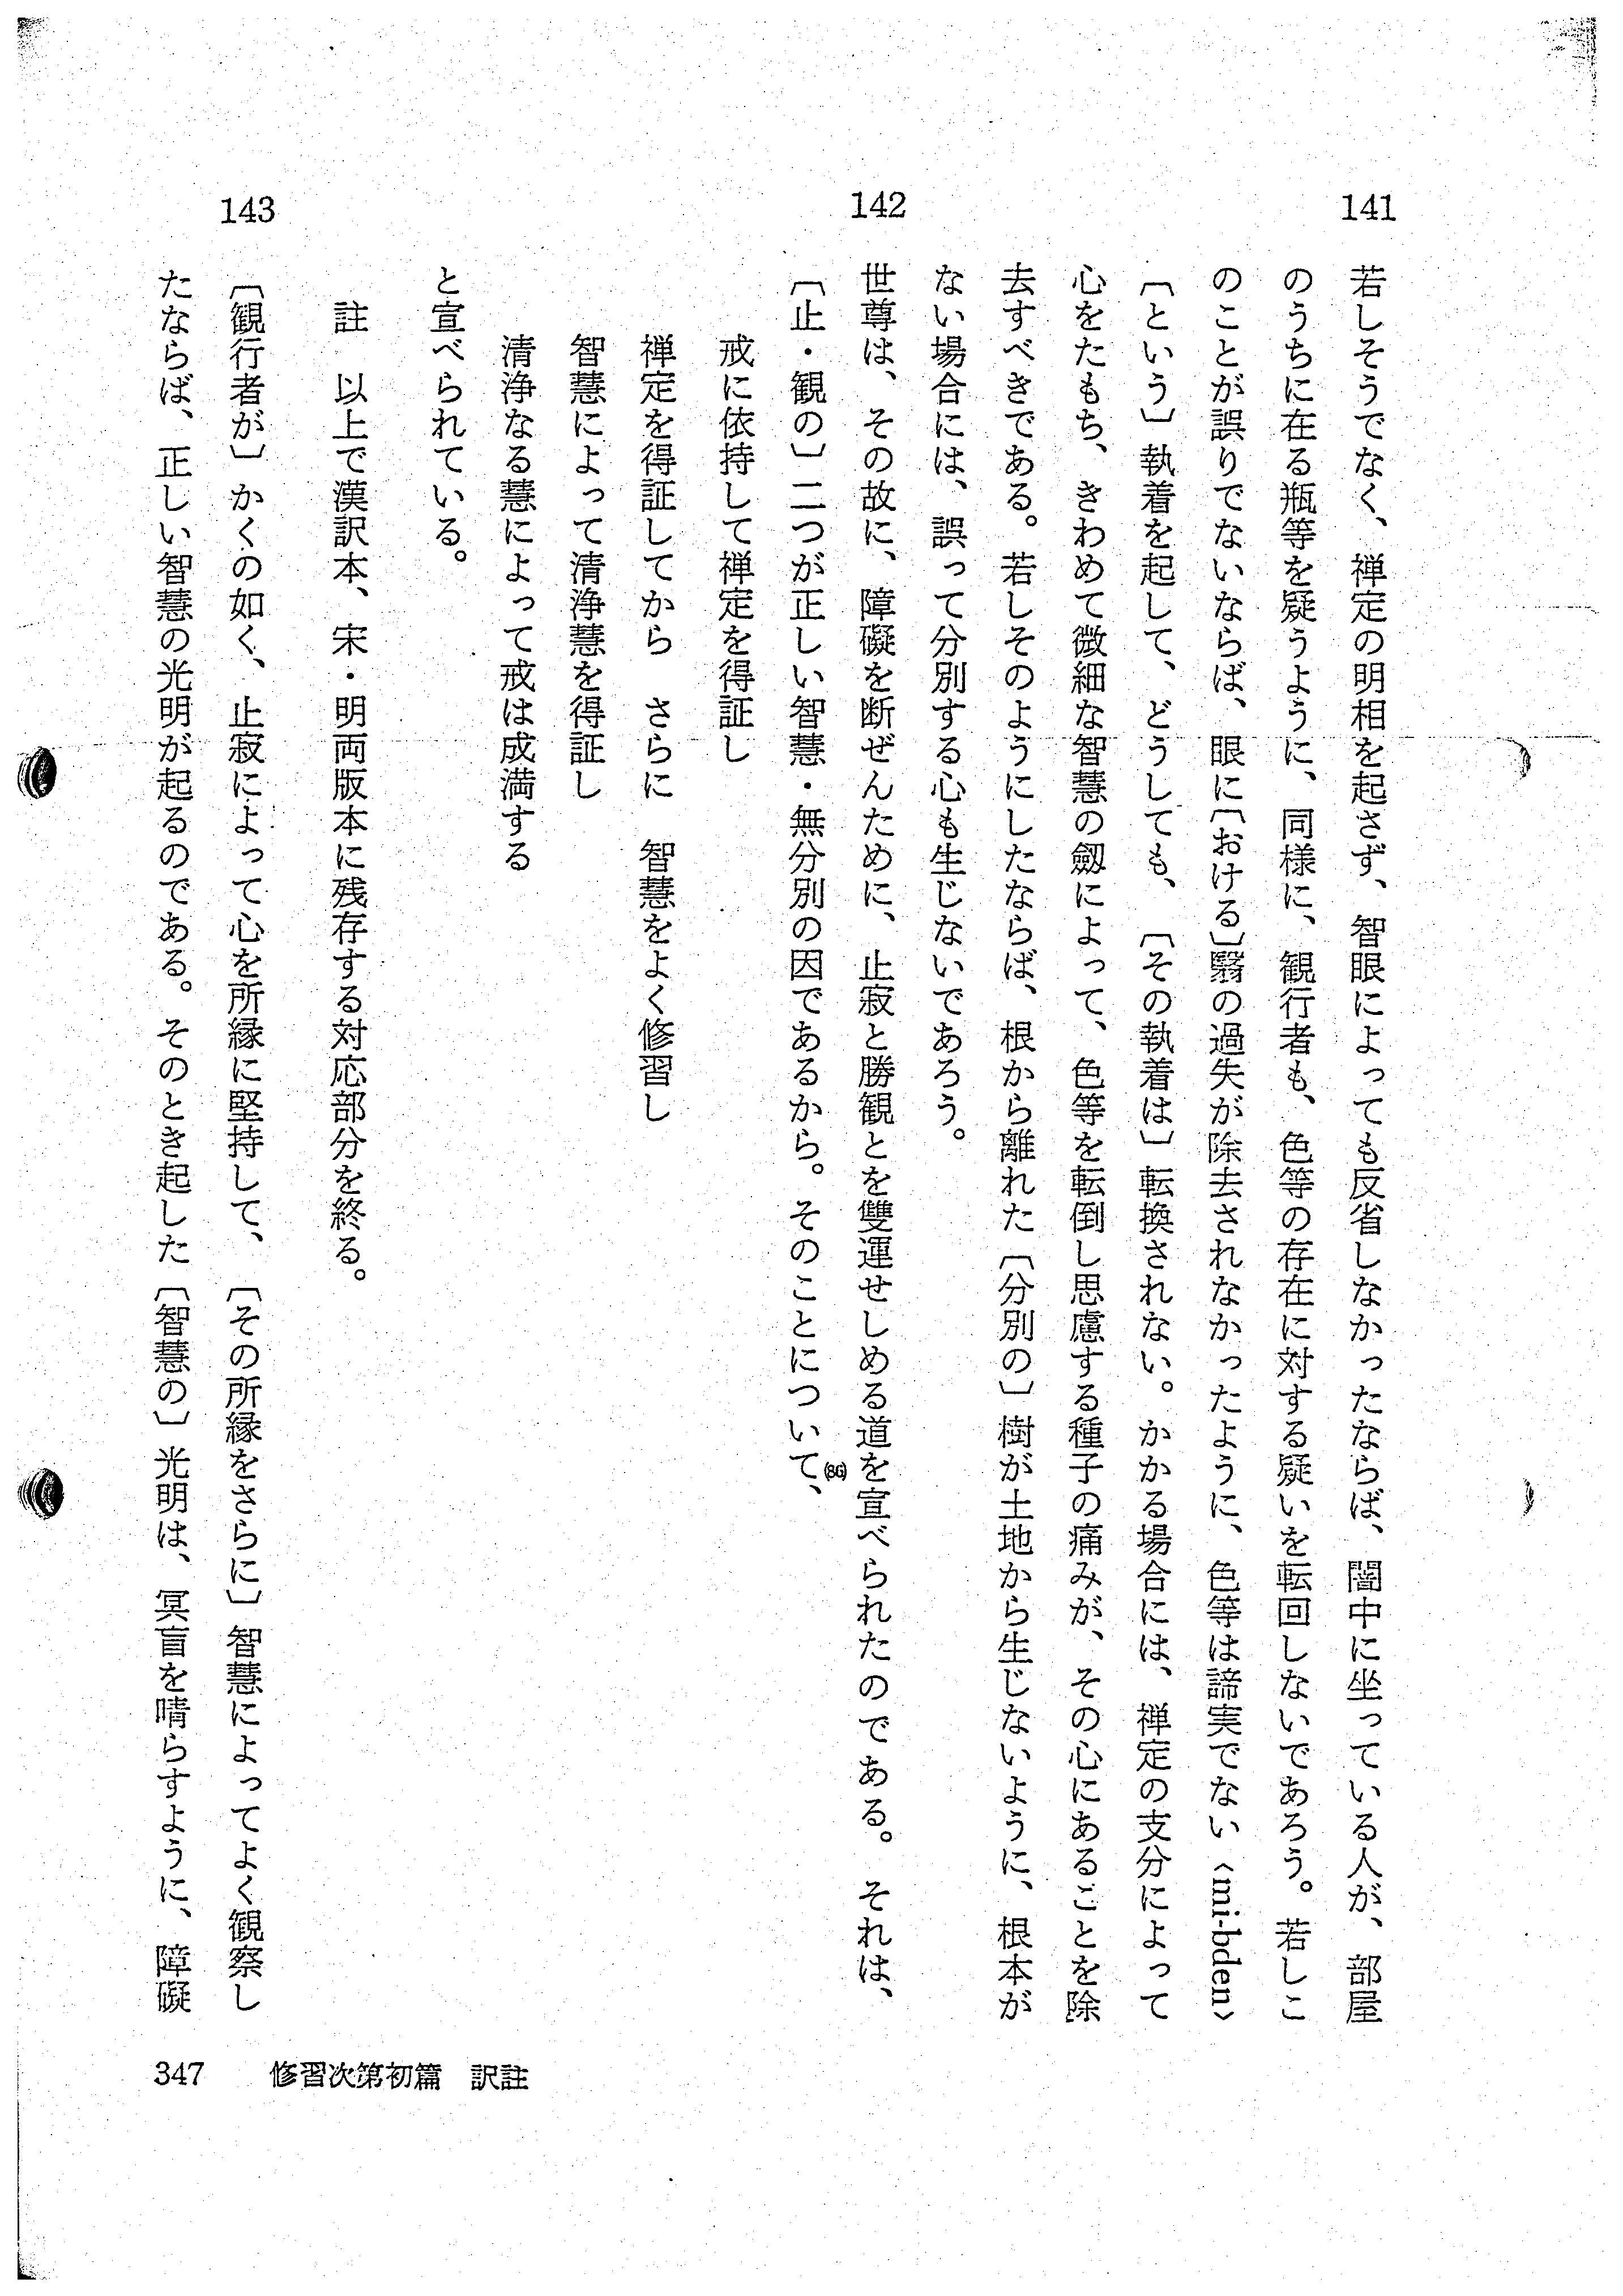 141
若しそうでなく、禅定の明相を起さず、智眼によっても反省しなかったならば、闇中に坐っている人が、部屋
のうちに在る瓶等を疑うように、同様に、観行者も、色等の存在に対する疑いを転回しないであろう。若しこ
のことが誤りでないならば、眼に〔おける〕翳の過失が除去されなかったように、色等は諦実でない〈mi-bden〉
〔という〕執着を起して、どうしても、〔その執着は〕転換されない。かかる場合には、禅定の支分によって
心をたもち、きわめて微細な智慧の劔によって、色等を転倒し思慮する種子の痛みが、その心にあることを除
去すべきである。若しそのようにしたならば、根から離れた〔分別の〕樹が土地から生じないように、根本が
ない場合には、誤って分別する心も生じないであろう。
142
世尊は、その故に、障礙を断ぜんために、止寂と勝観とを雙運せしめる道を宣べられたのである。それは、
〔止・観の〕二つが正しい智慧・無分別の因であるから。そのことについて、(86)
戒に依持して禅定を得証し
禅定を得証してから　さらに　智慧をよく修習し
智慧によって清浄慧を得証し
清浄なる慧によって戒は成満する
と宣べられている。
註　以上で漢訳本、宋・明両版本に残存する対応部分を終る。
143
〔観行者が〕かくの如く、止寂によって心を所縁に堅持して、〔その所縁をさらに〕智慧によってよく観察し
たならば、正しい智慧の光明が起るのである。そのとき起した〔智慧の〕光明は、冥盲を晴らすように、障礙
347　修習次第初篇　訳註